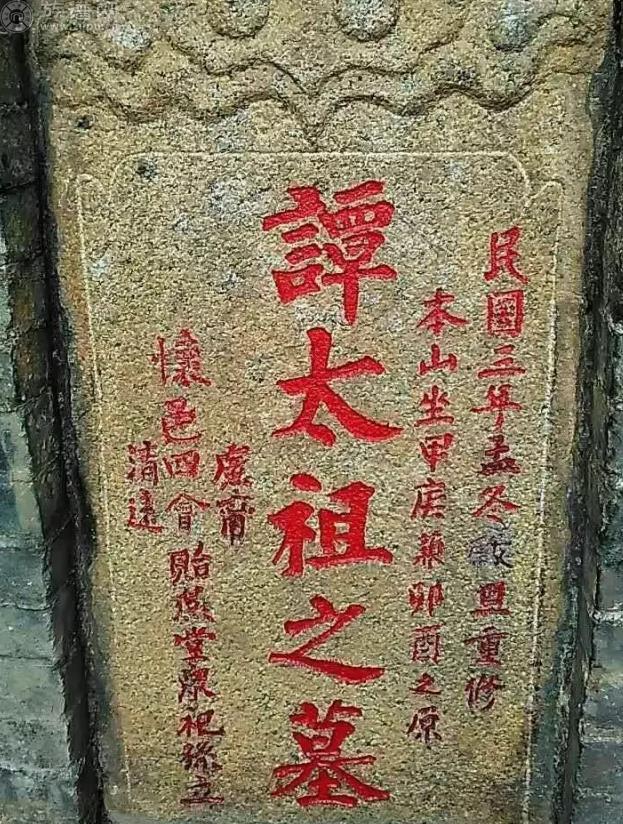 民國三年孟冬歃盟重修
本山坐甲庚兼卯酉之原
譚太祖之墓
廣甯
懷邑四會貽燕堂眾祀孫立
清遠